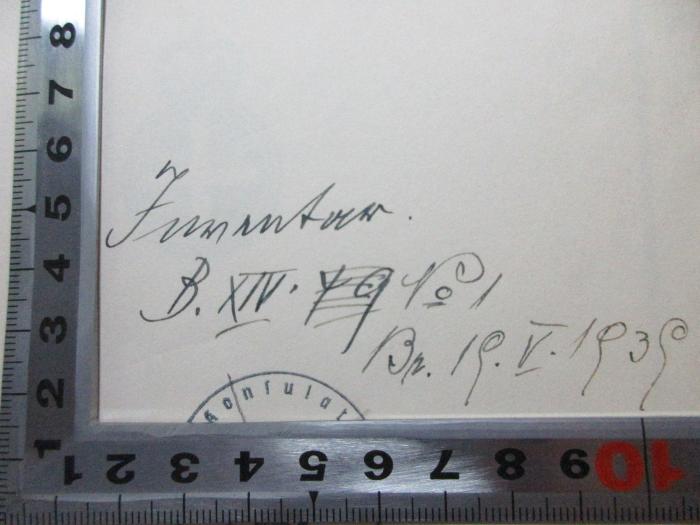 Inventar.
B. XIV. No 1
Br. 19. V. 1939
Konsulat
8
7
6
5
4
3
2
1
1 2 3 4 5 6 7 8 9 10